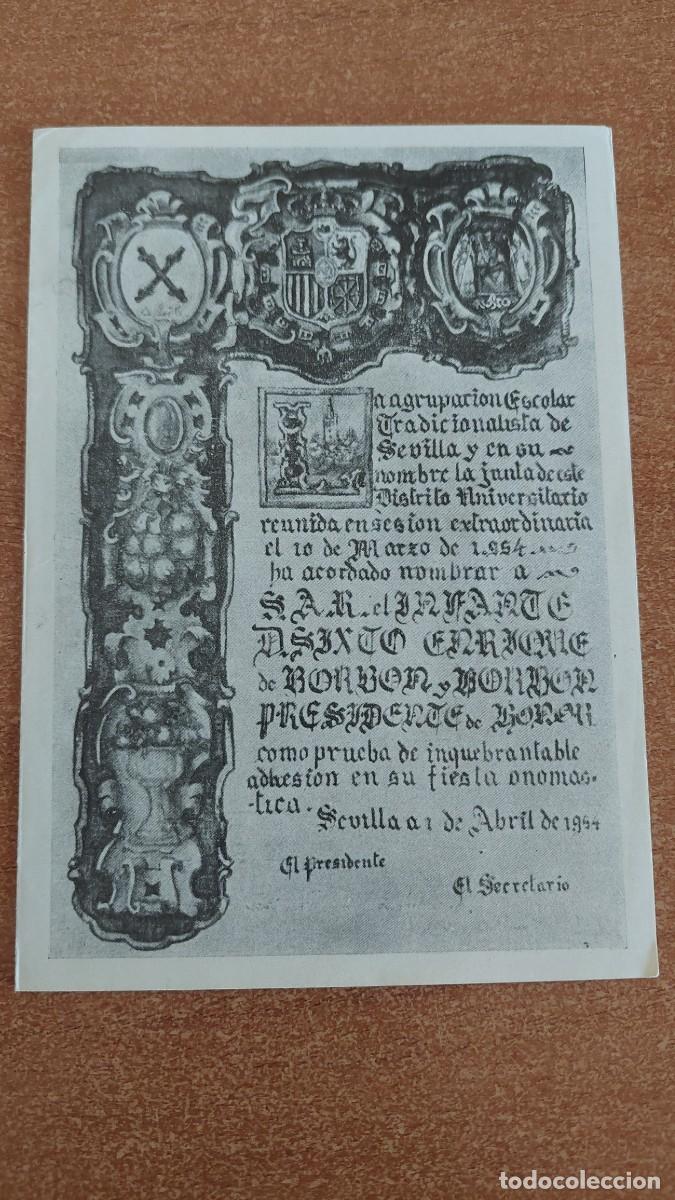 A.E.T.
NO8DO
La agrupacion Escolar
Tradicionalista de
Sevilla y en su
nombre la junta de este
Distrito Universitario
reunida en sesion extraordinaria
el 10 de Marzo de 1.954
ha acordado nombrar a
S.A.R. el INFANTE
D.SIXTO ENRIQUE
de BORBON y BORBON
PRESIDENTE de HONOR
como prueba de inquebrantable
adhesion en su fiesta onomas-
tica.
Sevilla a 1 de Abril de 1954
El Presidente
El Secretario
todocoleccion